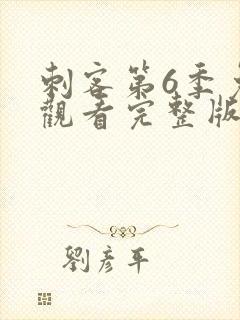 刺客第6季
觀看完整版
劉彥平